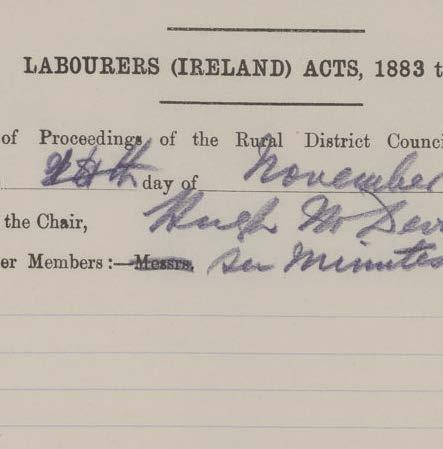 LABOURERS (IRELAND) ACTS, 1883 t
of Proceedings of the Rural District Counci
day of November
the Chair, Hugh McDev
er Members:—Messrs. see Minutes